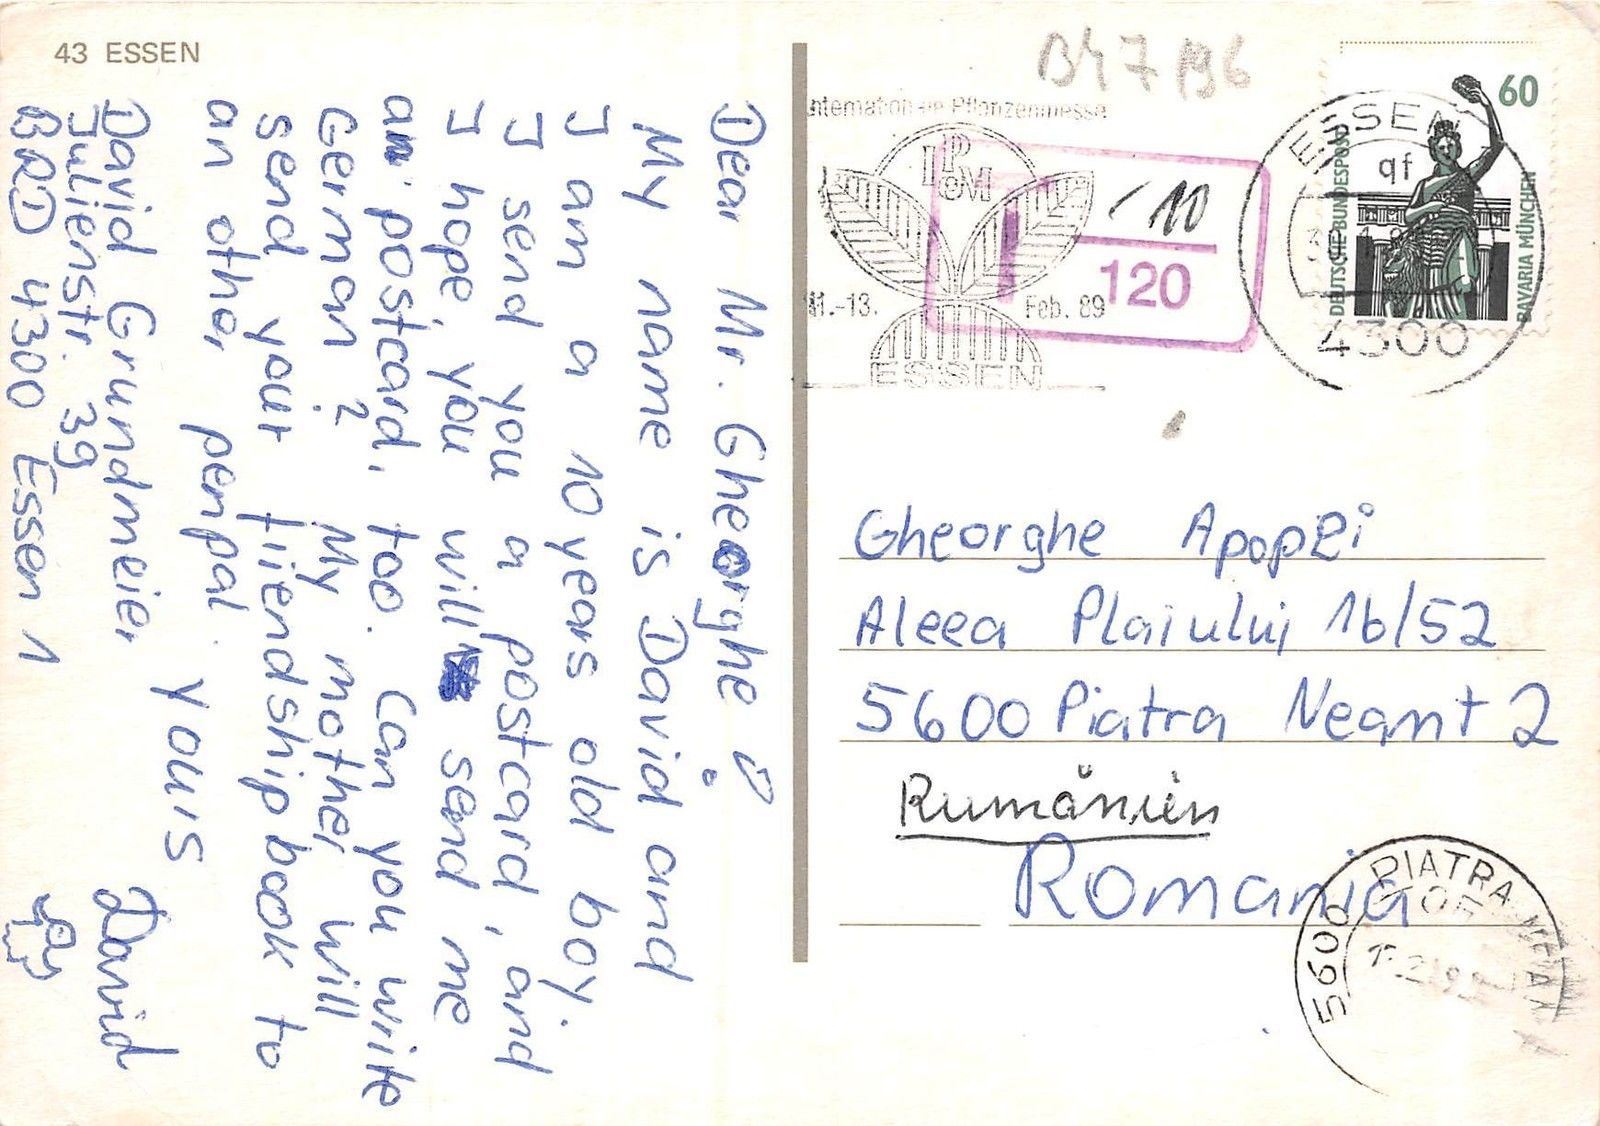 43 ESSEN
Dear Mr. Gheorghe!
My name is David and
I am a 10 years old boy.
I send you a postcard, and
I hope, you will send me
an postcard, too. Can you write
German? My mother will
send your friendshipbook to
an other penpal.
yours
David
David Grundmeier
Julienstr. 39
BRD 4300 Essen 1
B47 A96
Internationale Pflanzenmesse
IPM
11.-13. Feb. 89
ESSEN
T
10
120
ESSEN
qf
4300
60
DEUTSCHE BUNDESPOST
BAVARIA MÜNCHEN
Gheorghe Apopei
Aleea Plaiului 1b/52
5600 Piatra Neamt 2
Rumänien
Romania
5600 PIATRA NEAMT